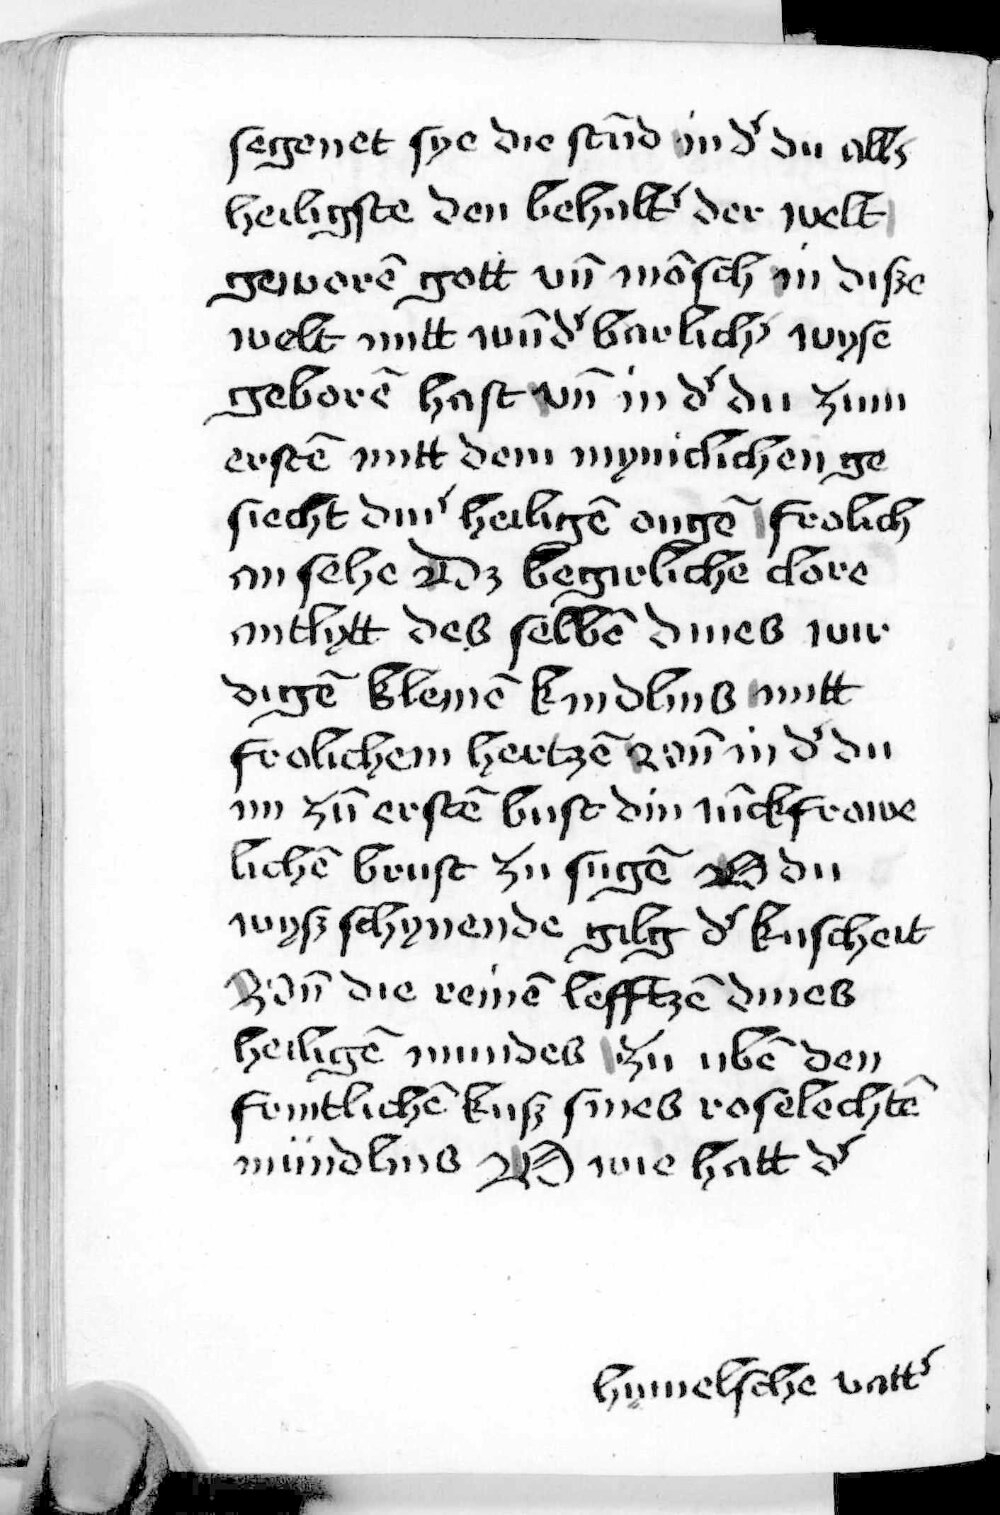 segenet sye die stūd in d' du all'
heiligste den behalt' der welt
gewarē gott vn̄ mōsch in disze
welt mitt wūd'barlich' wyse
geborē hast vn̄ in d' du zum
erstē mitt dem myniclichen ge
siecht din' heiligē ougē frolich
an sehe Dz begirliche clore
antlytt des selbē dines wir
digē kleinē kindlins mitt
frolichem hertzē Vn̄ in d' du
im zū erstē butst din iūckfrowe
lichē brust zu sugē O du
wysz schynende gilg d' kuscheit
Vn̄ die reinē lefftzē dines
heiligē mundes zu ubē den
frintlichē kusz sines roselechtē
mündlins O wie hatt d'
hymelsche vatt'